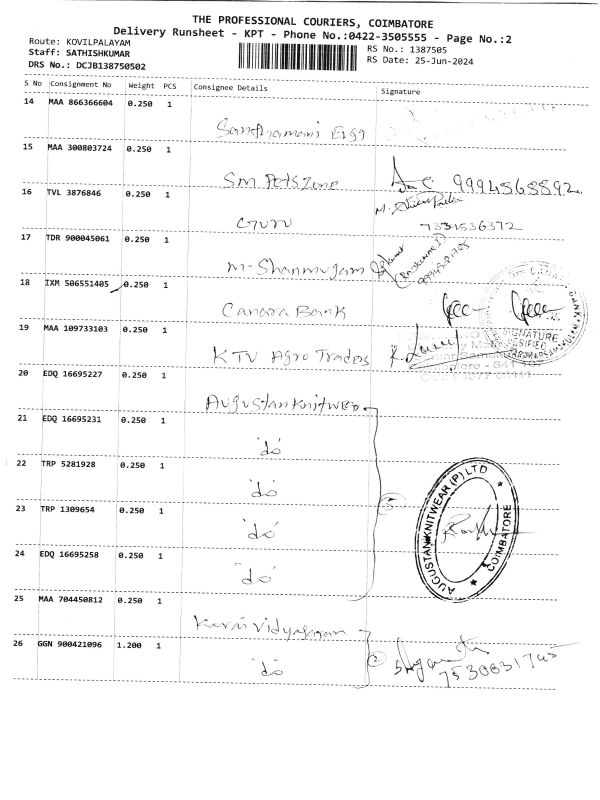 THE PROFESSIONAL COURIERS, COIMBATORE
Delivery Runsheet - KPT - Phone No.:0422-3505555 - Page No.:2
Route: KOVILPALAYAM
RS No.: 1387505
Staff: SATHISHKUMAR
RS Date: 25-Jun-2024
DRS No.: DCJB138750502
S No Consignment No Weight PCS Consignee Details Signature
14 MAA 866366604 0.250 1
15 MAA 300803724 0.250 1
SM Pets Zone 9994568892
16 TVL 3876846 0.250 1
Guru 7331536372
17 TDR 900045061 0.250 1
M-Shanmugam
18 IXM 506551405 0.250 1
Canara Bank
19 MAA 109733103 0.250 1
KTV Agro Traders
20 EDQ 16695227 0.250 1
Augustan Knitwear
21 EDQ 16695231 0.250 1
'do'
22 TRP 5281928 0.250 1
'do'
23 TRP 1309654 0.250 1
'do'
5
AUGUSTAN KNITWEAR (P) LTD
COIMBATORE
24 EDQ 16695258 0.250 1
'do'
25 MAA 704450812 0.250 1
26 GGN 900421096 1.200 1
'do'
2
7530831745